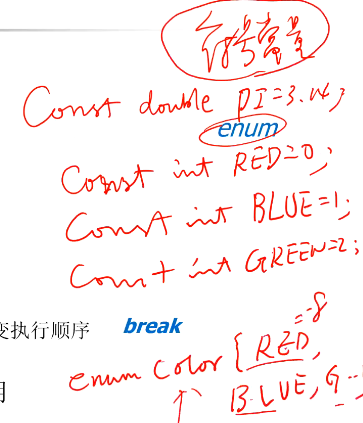 符号常量
Const double PI=3.14;
enum
Const int RED=0;
Const int BLUE=1;
Const int GREEN=2;
变执行顺序 break
=-8
enum Color {RED,
BLUE, G